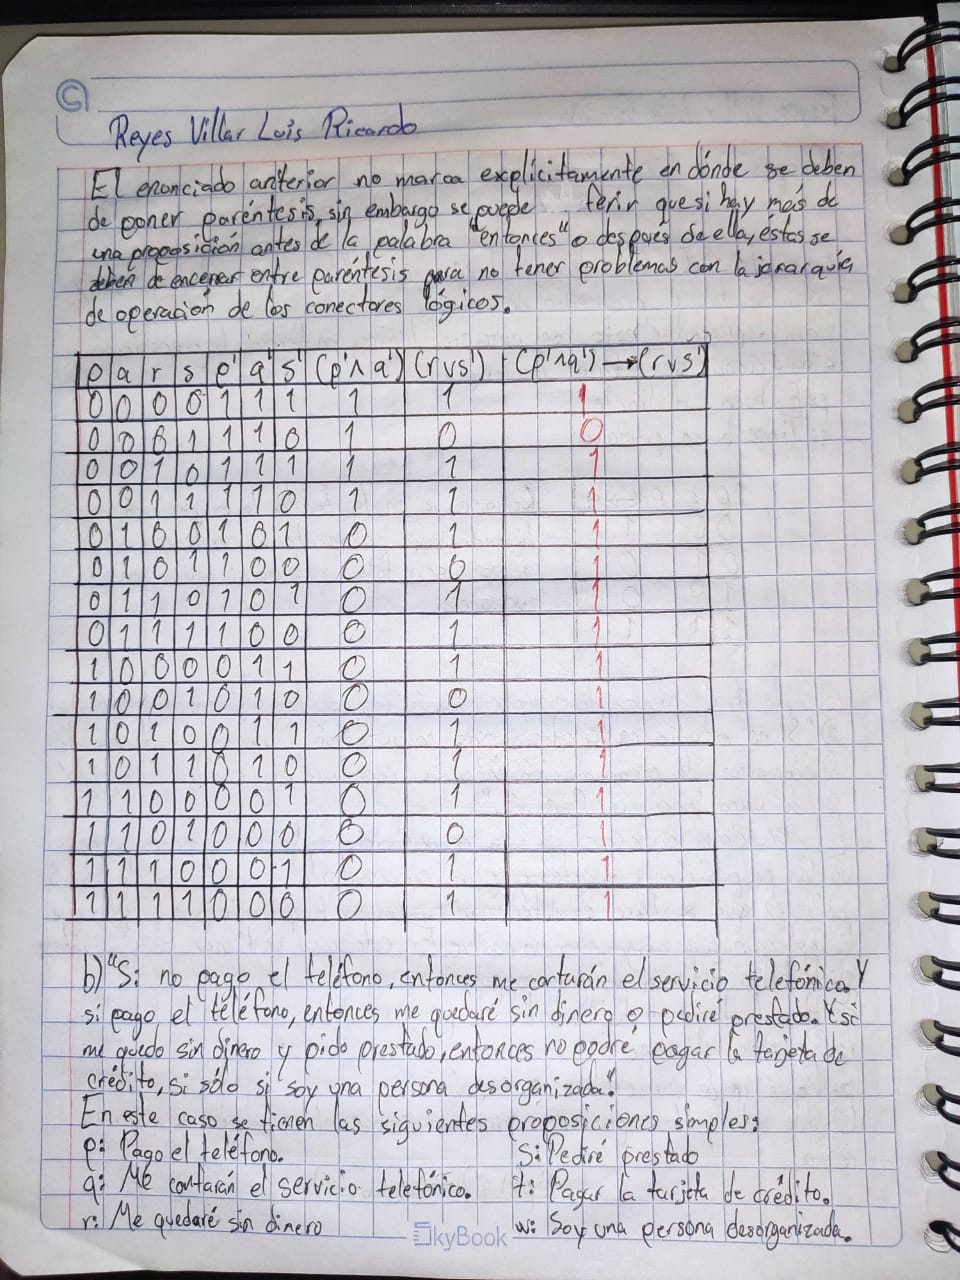 Reyes Villar Luis Ricardo
El enunciado anterior no marca explícitamente en dónde se deben
de poner paréntesis, sin embargo se puede ferir que si hay más de
una proposición antes de la palabra "entonces" o después de ella, éstas se
deben de encerrar entre paréntesis para no tener problemas con la jerarquía
de operación de los conectores lógicos.
p q r s p' q' s' (p'∧q') (r∨s') (p'∧q')→(r∨s')
0 0 0 0 1 1 1 1 1 1
0 0 0 1 1 1 0 1 0 0
0 0 1 0 1 1 1 1 1 1
0 0 1 1 1 1 0 1 1 1
0 1 0 0 1 0 1 0 1 1
0 1 0 1 1 0 0 0 0 1
0 1 1 0 1 0 1 0 1 1
0 1 1 1 1 0 0 0 1 1
1 0 0 0 0 1 1 0 1 1
1 0 0 1 0 1 0 0 0 1
1 0 1 0 0 1 1 0 1 1
1 0 1 1 0 1 0 0 1 1
1 1 0 0 0 0 1 0 1 1
1 1 0 1 0 0 0 0 0 1
1 1 1 0 0 0 1 0 1 1
1 1 1 1 0 0 0 0 1 1
b) "Si no pago el teléfono, entonces me cortarán el servicio telefónico. Y
si pago el teléfono, entonces me quedaré sin dinero o pediré prestado. Y si
me quedo sin dinero y pido prestado, entonces no podré pagar la tarjeta de
crédito, si sólo si soy una persona desorganizada."
En este caso se tienen las siguientes proposiciones simples:
p: Pago el teléfono. s: Pediré prestado
q: Me cortarán el servicio telefónico. t: Pagar la tarjeta de crédito.
r: Me quedaré sin dinero w: Soy una persona desorganizada.
SkyBook